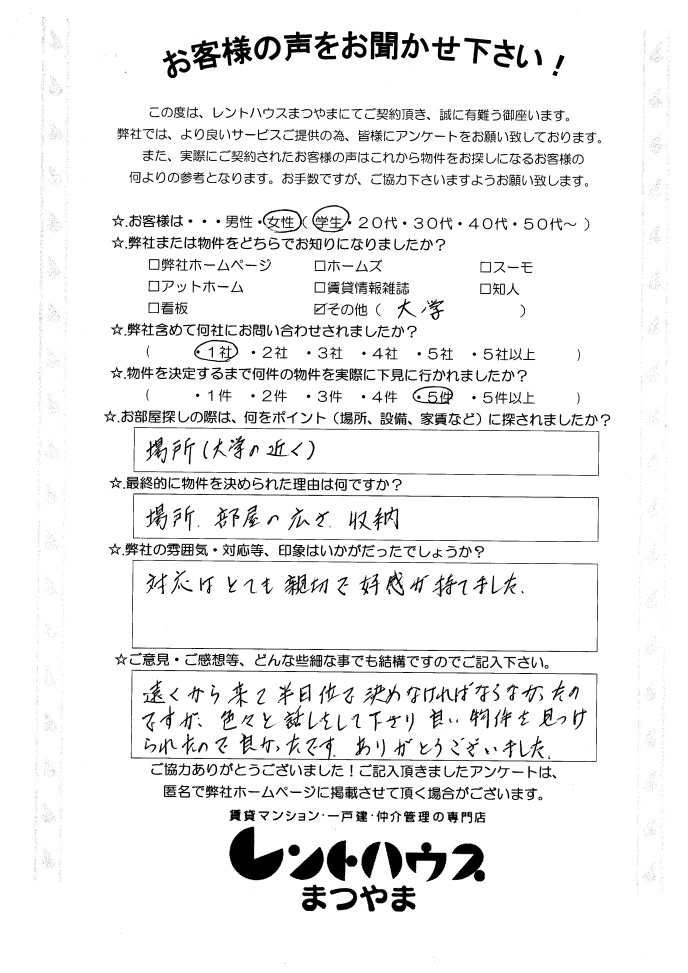 お客様の声をお聞かせ下さい！
この度は、レントハウスまつやまにてご契約頂き、誠に有難う御座います。
弊社では、より良いサービスご提供の為、皆様にアンケートをお願い致しております。
また、実際にご契約されたお客様の声はこれから物件をお探しになるお客様の
何よりの参考となります。お手数ですが、ご協力下さいますようお願い致します。
☆.お客様は・・・男性・女性（ 学生・２０代・３０代・４０代・５０代～ ）
☆.弊社または物件をどちらでお知りになりましたか？
□弊社ホームページ □ホームズ □スーモ
□アットホーム □賃貸情報雑誌 □知人
□看板 ☑その他（ 大学 ）
☆.弊社含めて何社にお問い合わせされましたか？
（ ・１社 ・２社 ・３社 ・４社 ・５社 ・５社以上 ）
☆.物件を決定するまで何件の物件を実際に下見に行かれましたか？
（ ・１件 ・２件 ・３件 ・４件 ・５件 ・５件以上 ）
☆.お部屋探しの際は、何をポイント（場所、設備、家賃など）に探されましたか？
場所（大学の近く）
☆.最終的に物件を決められた理由は何ですか？
場所、部屋の広さ、収納
☆.弊社の雰囲気・対応等、印象はいかがだったでしょうか？
対応はとても親切で好感が持てました、
☆ご意見・ご感想等、どんな些細な事でも結構ですのでご記入下さい。
遠くから来て半日位で決めなければならなかったの
ですが、色々と話しをして下さり良い物件を見つけ
られたので良かったです。ありがとうございました。
ご協力ありがとうございました！ご記入頂きましたアンケートは、
匿名で弊社ホームページに掲載させて頂く場合がございます。
賃貸マンション・一戸建・仲介管理の専門店
レントハウス
まつやま